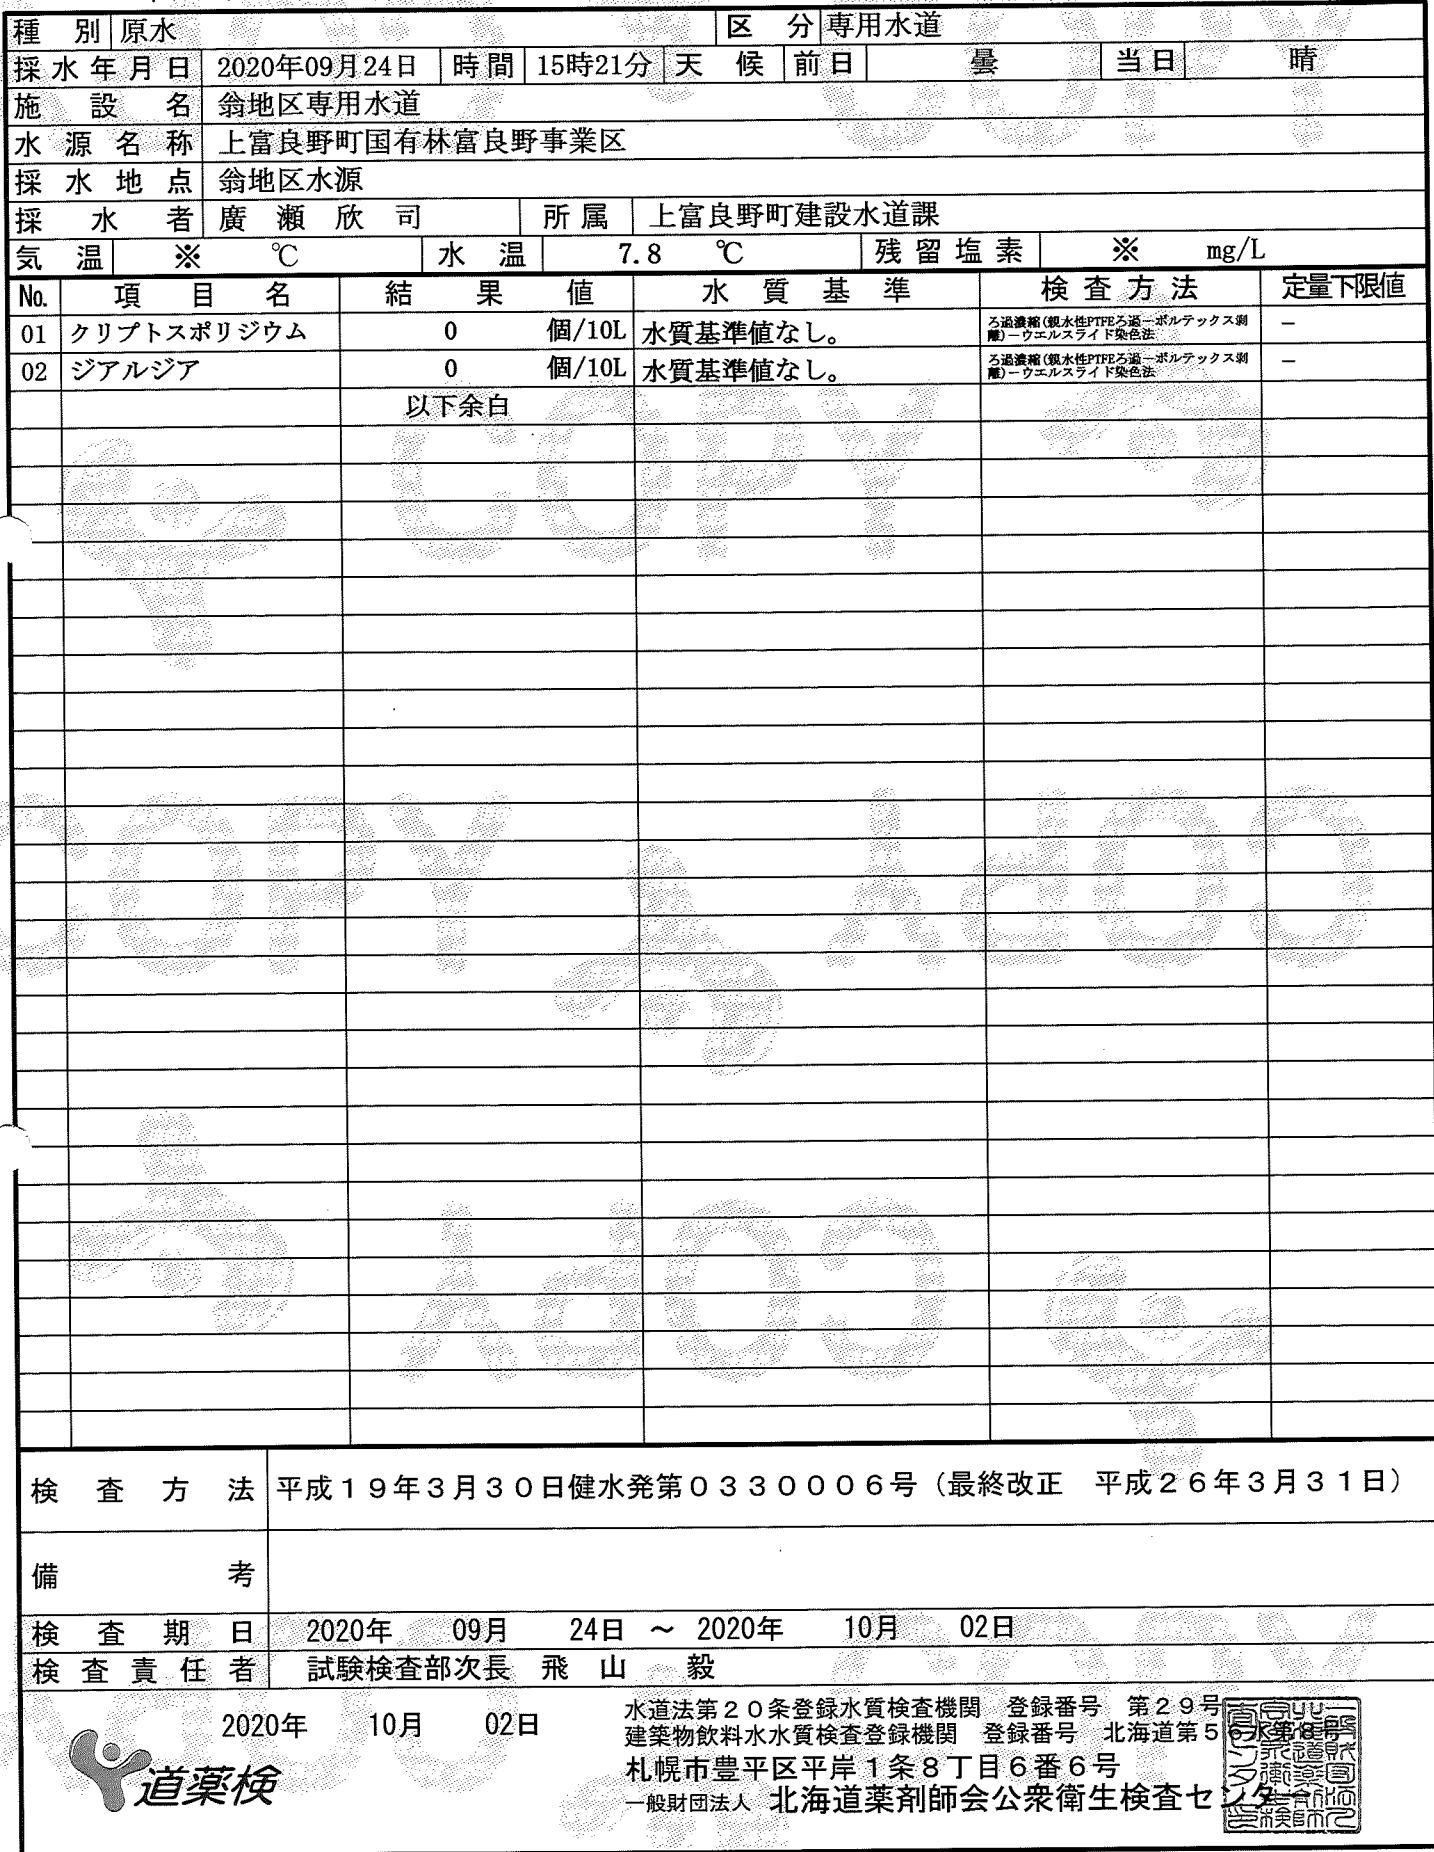 種 別 原水 区 分 専用水道
採水年月日 2020年09月24日 時間 15時21分 天 候 前日 曇 当日 晴
施 設 名 翁地区専用水道
水 源 名 称 上富良野町国有林富良野事業区
採 水 地 点 翁地区水源
採 水 者 廣 瀬 欣 司 所属 上富良野町建設水道課
気 温 ※ ℃ 水 温 7.8 ℃ 残留塩素 ※ mg/L
No. 項 目 名 結 果 値 水 質 基 準 検査方法 定量下限値
01 クリプトスポリジウム 0 個/10L 水質基準値なし。 ろ過濃縮(親水性PTFEろ過－ボルテックス剥
離)－ウエルスライド染色法 －
02 ジアルジア 0 個/10L 水質基準値なし。 ろ過濃縮(親水性PTFEろ過－ボルテックス剥
離)－ウエルスライド染色法 －
以下余白
COPY
COPY
COPY
COPY
検 査 方 法 平成１９年３月３０日健水発第０３３０００６号（最終改正　平成２６年３月３１日）
備 考
検 査 期 日 2020年 09月 24日 ～ 2020年 10月 02日
検査責任者 試験検査部次長 飛 山 毅
2020年 10月 02日
道薬検
水道法第２０条登録水質検査機関　登録番号　第２９号
建築物飲料水水質検査登録機関　登録番号　北海道第５６水第８号
札幌市豊平区平岸１条８丁目６番６号
一般財団法人 北海道薬剤師会公衆衛生検査センター